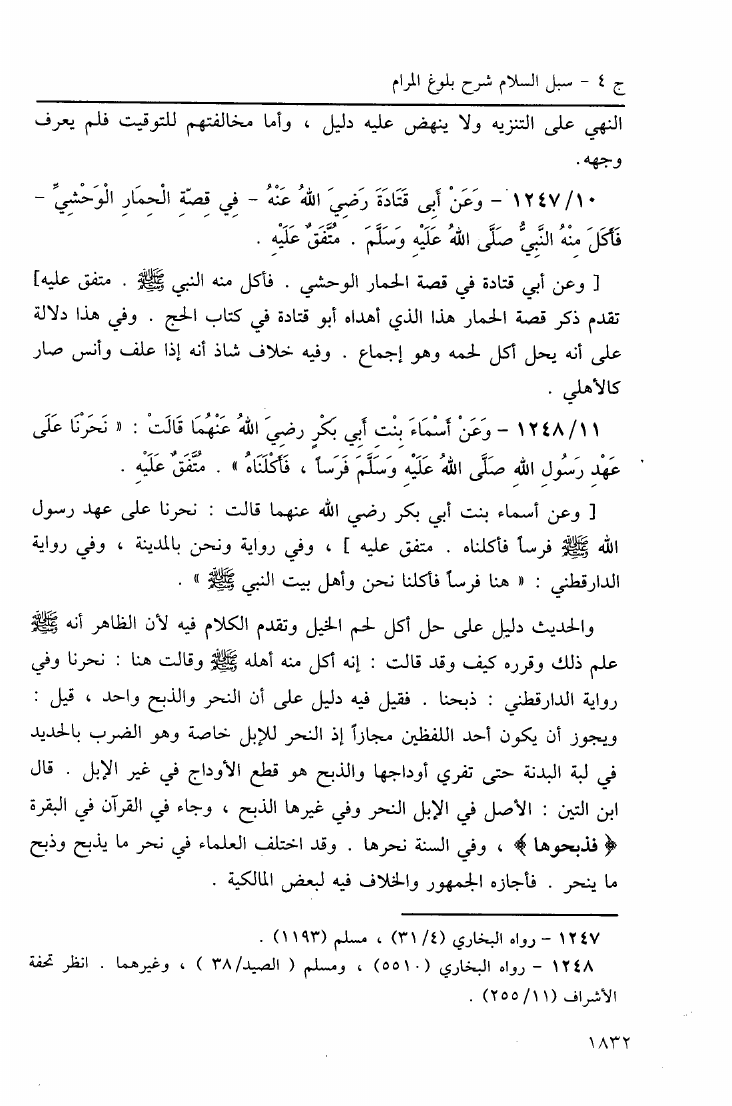 ج ٤ - سبل السلام شرح بلوغ المرام
النهي على التنزيه ولا ينهض عليه دليل ، وأما مخالفتهم للتوقيت فلم يعرف
وجهه.
١٢٤٧/١٠ - وَعَنْ أَبِى قَتَادَةَ رَضِيَ اللهُ عَنْهُ - فِي قِصَّةِ الْحِمَارِ الْوَحْشِيِّ -
فَأَكَلَ مِنْهُ النَّبِيُّ صَلَّى اللهُ عَلَيْهِ وَسَلَّمَ . مُتَّفَقٌ عَلَيْهِ .
[ وعن أبي قتادة في قصة الحمار الوحشي . فأكل منه النبي ﷺ . متفق عليه]
تقدم ذكر قصة الحمار هذا الذي أهداه أبو قتادة في كتاب الحج . وفي هذا دلالة
على أنه يحل أكل لحمه وهو إجماع . وفيه خلاف شاذ أنه إذا علف وأنس صار
كالأهلي .
١٢٤٨/١١ - وَعَنْ أَسْمَاءَ بِنْتِ أَبِي بَكْرٍ رضِيَ اللهُ عَنْهُمَا قَالَتْ : « نَحَرْنَا عَلَى
عَهْدِ رَسُولِ اللهِ صَلَّى اللهُ عَلَيْهِ وَسَلَّمَ فَرَساً ، فَأَكَلْنَاهُ » . مُتَّفَقٌ عَلَيْهِ .
[ وعن أسماء بنت أبي بكر رضي الله عنهما قالت : نحرنا على عهد رسول
الله ﷺ فرساً فأكلناه . متفق عليه ] ، وفي رواية ونحن بالمدينة ، وفي رواية
الدارقطني : « هنا فرساً فأكلنا نحن وأهل بيت النبي ﷺ » .
والحديث دليل على حل أكل لحم الخيل وتقدم الكلام فيه لأن الظاهر أنه ﷺ
علم ذلك وقرره كيف وقد قالت : إنه أكل منه أهله ﷺ وقالت هنا : نحرنا وفي
رواية الدارقطني : ذبحنا . فقيل فيه دليل على أن النحر والذبح واحد ، قيل :
ويجوز أن يكون أحد اللفظين مجازاً إذ النحر للإبل خاصة وهو الضرب بالحديد
في لبة البدنة حتى تفري أوداجها والذبح هو قطع الأوداج في غير الإبل . قال
ابن التين : الأصل في الإبل النحر وفي غيرها الذبح ، وجاء في القرآن في البقرة
﴿ فذبحوها ﴾ ، وفي السنة نحرها . وقد اختلف العلماء في نحر ما يذبح وذبح
ما ينحر . فأجازه الجمهور والخلاف فيه لبعض المالكية .
١٢٤٧ - رواه البخاري (٣١/٤) ، مسلم (١١٩٣) .
١٢٤٨ - رواه البخاري (٥٥١٠) ، ومسلم ( الصيد/٣٨ ) ، وغيرهما . انظر تحفة
الأشراف (٢٥٥/١١) .
١٨٣٢